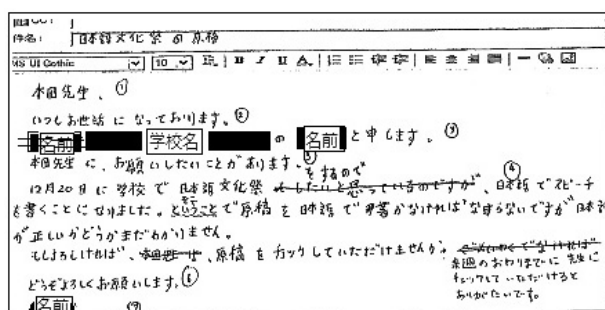 件名： 日本語文化祭の原稿
MS UI Gothic 10 B I U A
本田先生、①
いつもお世話になっております。②
名前 学校名 の 名前 と申します。③
本田先生に、お願いしたいことがあります。⑤
をするので
12月20日に学校で日本語文化祭をしたいと思っているのですが、④日本語でスピーチ
を書くことになりました。ということで原稿を日本語で書かなければならないですが日本語
が正しいかどうかまだわかりません。
もしよろしければ、原稿をチェックしていただけませんか。ごめいわくでなければ
来週のおわりまでに先生に
チェックしていただけると
ありがたいです。
どうぞよろしくお願いします。⑥
名前